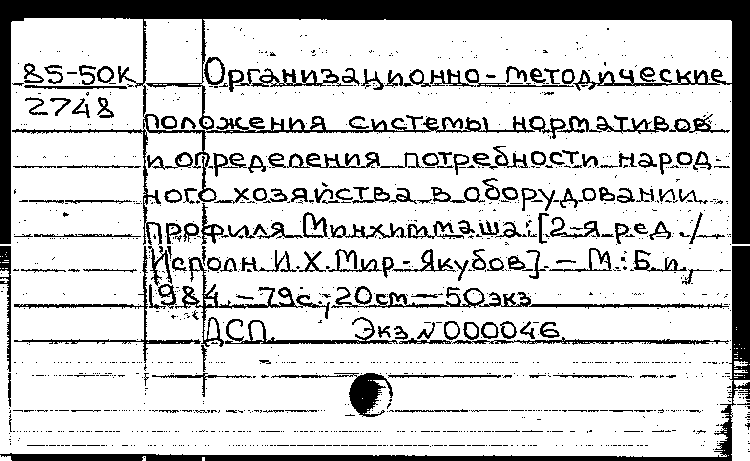 85-50К
2748
Организационно-методические
положения системы нормативов
и определения потребности народ-
ного хозяйства в оборудовании
профиля Минхиммаша: [2-я ред. /
Исполн. И.Х.Мир-Якубов]. - М.: Б.и.,
1984. - 79с.; 20см - 50экз
ДСП. Экз.N000046.